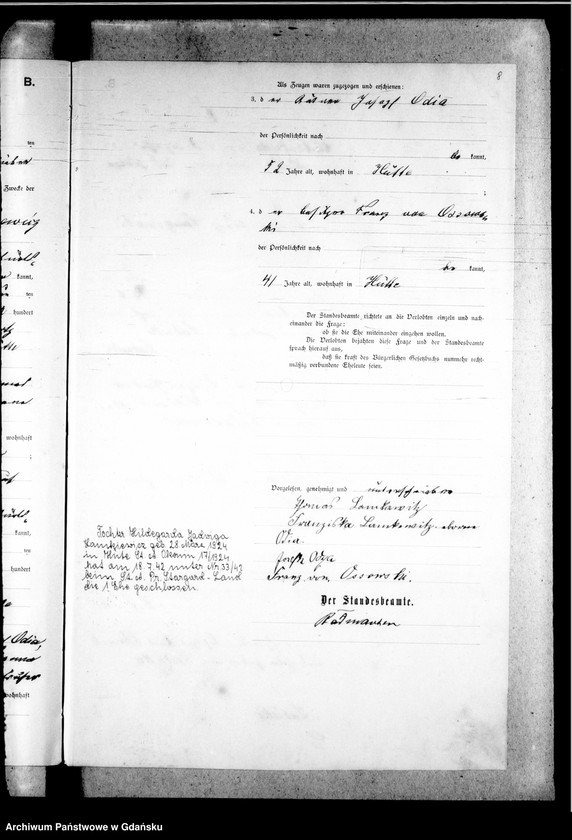 B.
8
Als Zeugen waren zugezogen und erschienen:
3. d er Josef Odia
der Persönlichkeit nach
be kannt,
52 Jahre alt, wohnhaft in Hütte
;
4. d er Franz von Ossows-
ki
der Persönlichkeit nach
be kannt,
41 Jahre alt, wohnhaft in Hütte
Der Standesbeamte richtete an die Verlobten einzeln und nach-
einander die Frage:
ob sie die Ehe miteinander eingehen wollen.
Die Verlobten bejahten diese Frage und der Standesbeamte
sprach hierauf aus,
daß sie kraft des Bürgerlichen Gesetzbuchs nunmehr recht-
mäßig verbundene Eheleute seien.
Vorgelesen, genehmigt und unterschrieben
Thomas Lamkewitz
Franziska Lamkewitz geborene
Odia.
Joseph Odia
Franz von Ossowski.
Der Standesbeamte.
Tochter Hildegarda Jadwiga
Lamkiewicz geb. 28. März 1924
in Hute St. A. 17/1924
hat am 18.7.42 unter Nr. 33/42
beim St. A. Pr. Stargard-Land
die 1 Ehe geschlossen.
ten
Zwecke der
kannt,
ten
hundert
wohnhaft
kannt,
ten
hundert
Odia,
wohnhaft
Archiwum Państwowe w Gdańsku